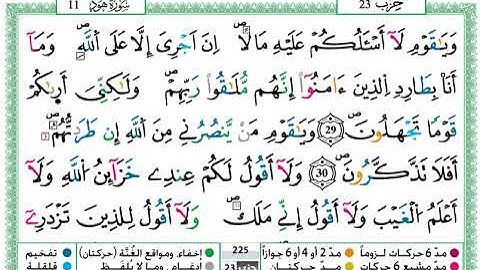 حِزْب 23 سُورَةُ هُودٍ 11
وَيَٰقَوْمِ لَآ أَسْـَٔلُكُمْ عَلَيْهِ مَالًا اِنَ اَجْرِىَ إِلَّا عَلَى اَللَّهِ وَمَآ
أَنَا بِطَارِدِ اِلذِينَ ءَامَنُوٓاْ إِنَّهُم مُّلَٰقُواْ رَبِّهِمْ وَلَٰكِنِّىَ أَرٜىٰكُمْ
قَوْمًا تَجْهَلُونَ 29 وَيَٰقَوْمِ مَنْ يَّنصُرُنِے مِنَ اَللَّهِ إِن طَرَدتُّهُمُۥٓ
أَفَلَا تَذَّكَّرُونَ 30 وَلَآ أَقُولُ لَكُمْ عِندِے خَزَآئِنُ اُللَّهِ وَلَآ
أَعْلَمُ اُلْغَيْبَ وَلَآ أَقُولُ إِنِّى مَلَكٌ وَلَآ أَقُولُ لِلذِينَ تَزْدَرِےٓ
مدّ 6 حركات لزوماً مدّ 2 أو 4 أو 6 جوازاً 225 إخفاء، ومواقع الغُنَّة (حركتان) تفخيم
مدّ مشبع 6 حركات مدّ حركتان 23 إدغام، وما لا يُلفَظ قلقلة